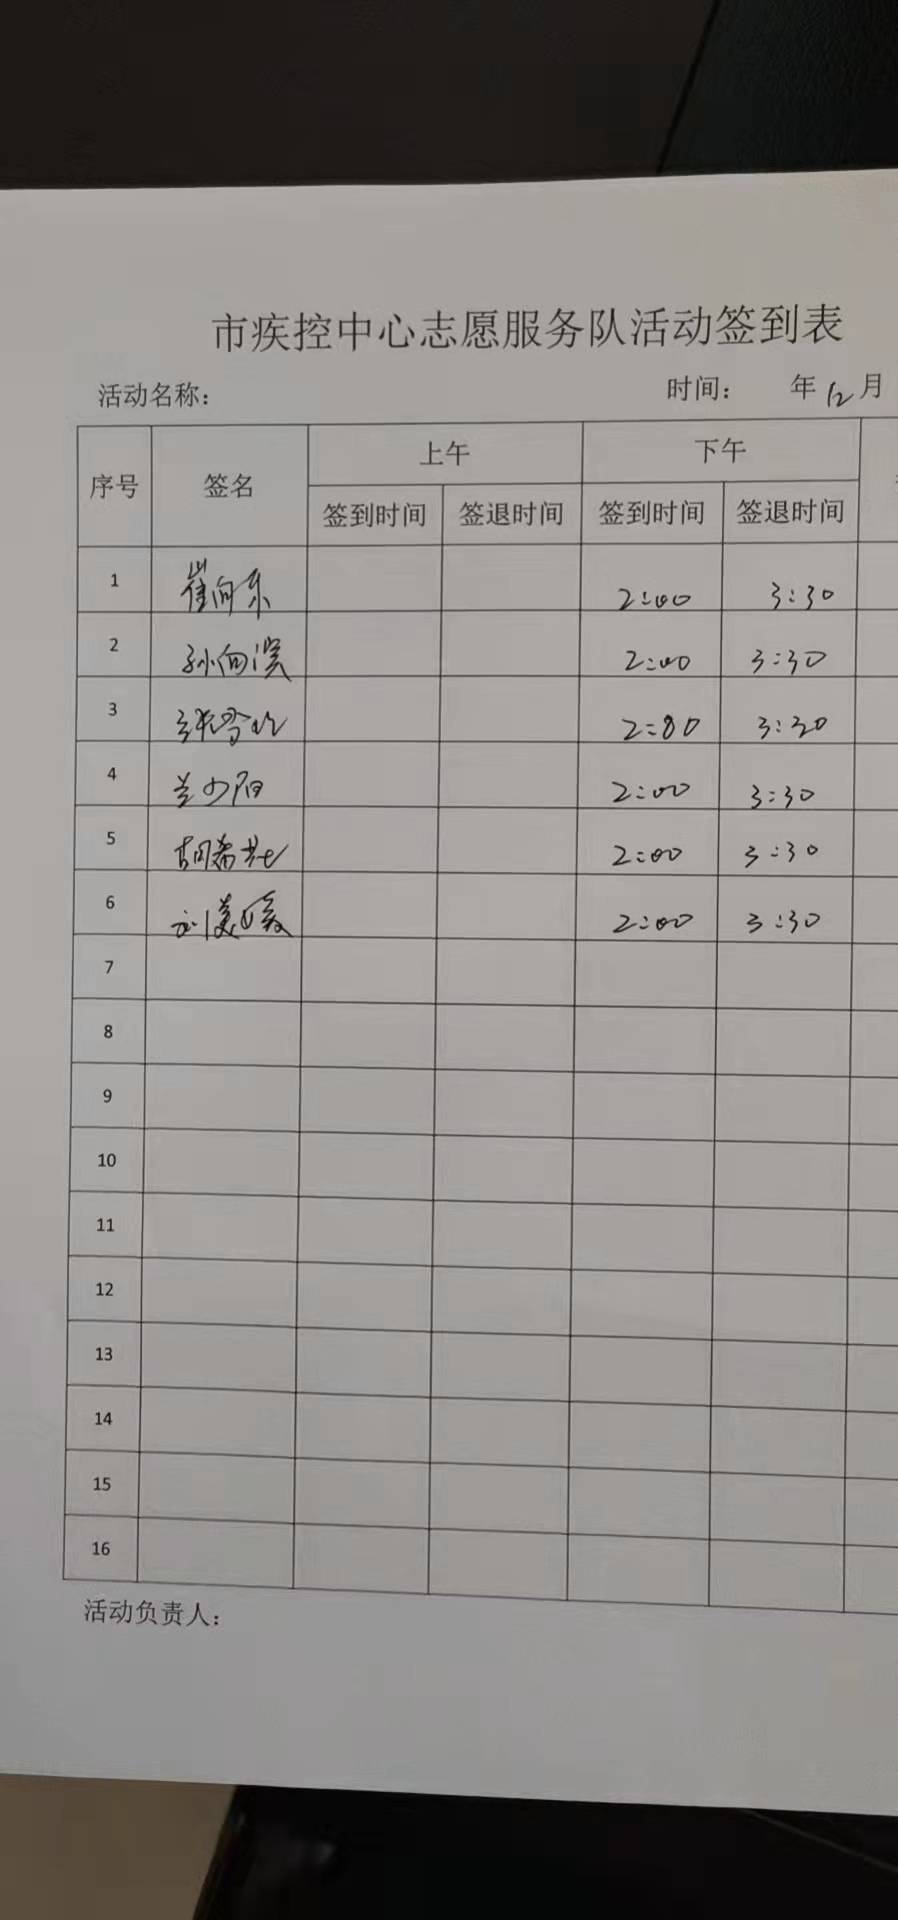 市疾控中心志愿服务队活动签到表
活动名称: 时间: 年12月
序号 签名 上午 下午
签到时间 签退时间 签到时间 签退时间
1 崔向东 2:00 3:30
2 孙向滨 2:00 3:30
3 2:00 3:30
4 兰少阳 2:00 3:30
5 胡希 2:00 3:30
6 2:00 3:30
7
8
9
10
11
12
13
14
15
16
活动负责人: